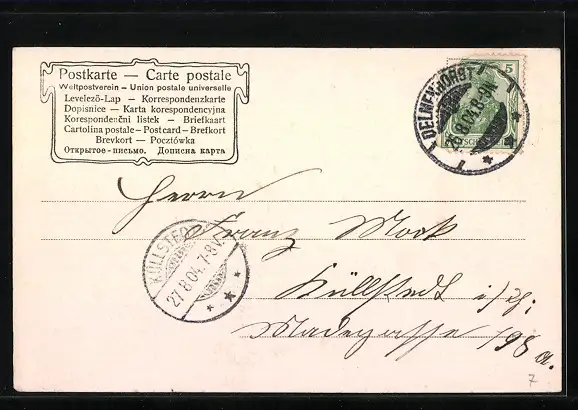 Postkarte — Carte postale
Weltpostverein – Union postale universelle
Levelező-Lap — Korrespondenzkarte
Dopisnice — Karta korespondencyjna
Korespondenční listek — Briefkaart
Cartolina postale – Postcard – Brefkort
Brevkort — Pocztówka
Открытое-письмо. Дописна карта
5
DELMENHORST
26.8.04.8-9N.
1
Herrn
Franz Mock
KÜLLSTEDT
27.8.04.7-8V.
Küllstedt i/Th;
Madegasse 198 a.
7